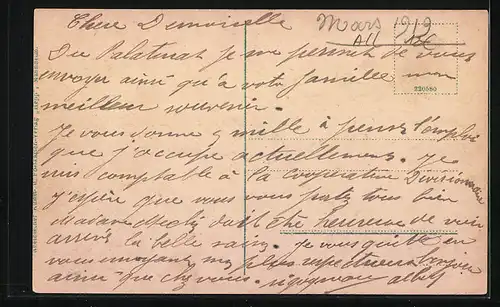 Mars 1919
All
Chere Demoiselle
Du Palatinat je me permet de vous
envoyer ainsi qu'à votre famille mon
meilleur souvenir.
220080
Je vous donne 9 mille à penser l'emploi
que j'occupe actuellement. Je
suis comptable à la cooperative Divisionnaire
J'espère que vous vous portez tous bien
Madame doit être heureuse de voir
arriver la belle saison. Je vous quitte en
vous envoyant mes plus respectueux
ainsi que chez vous. Albert